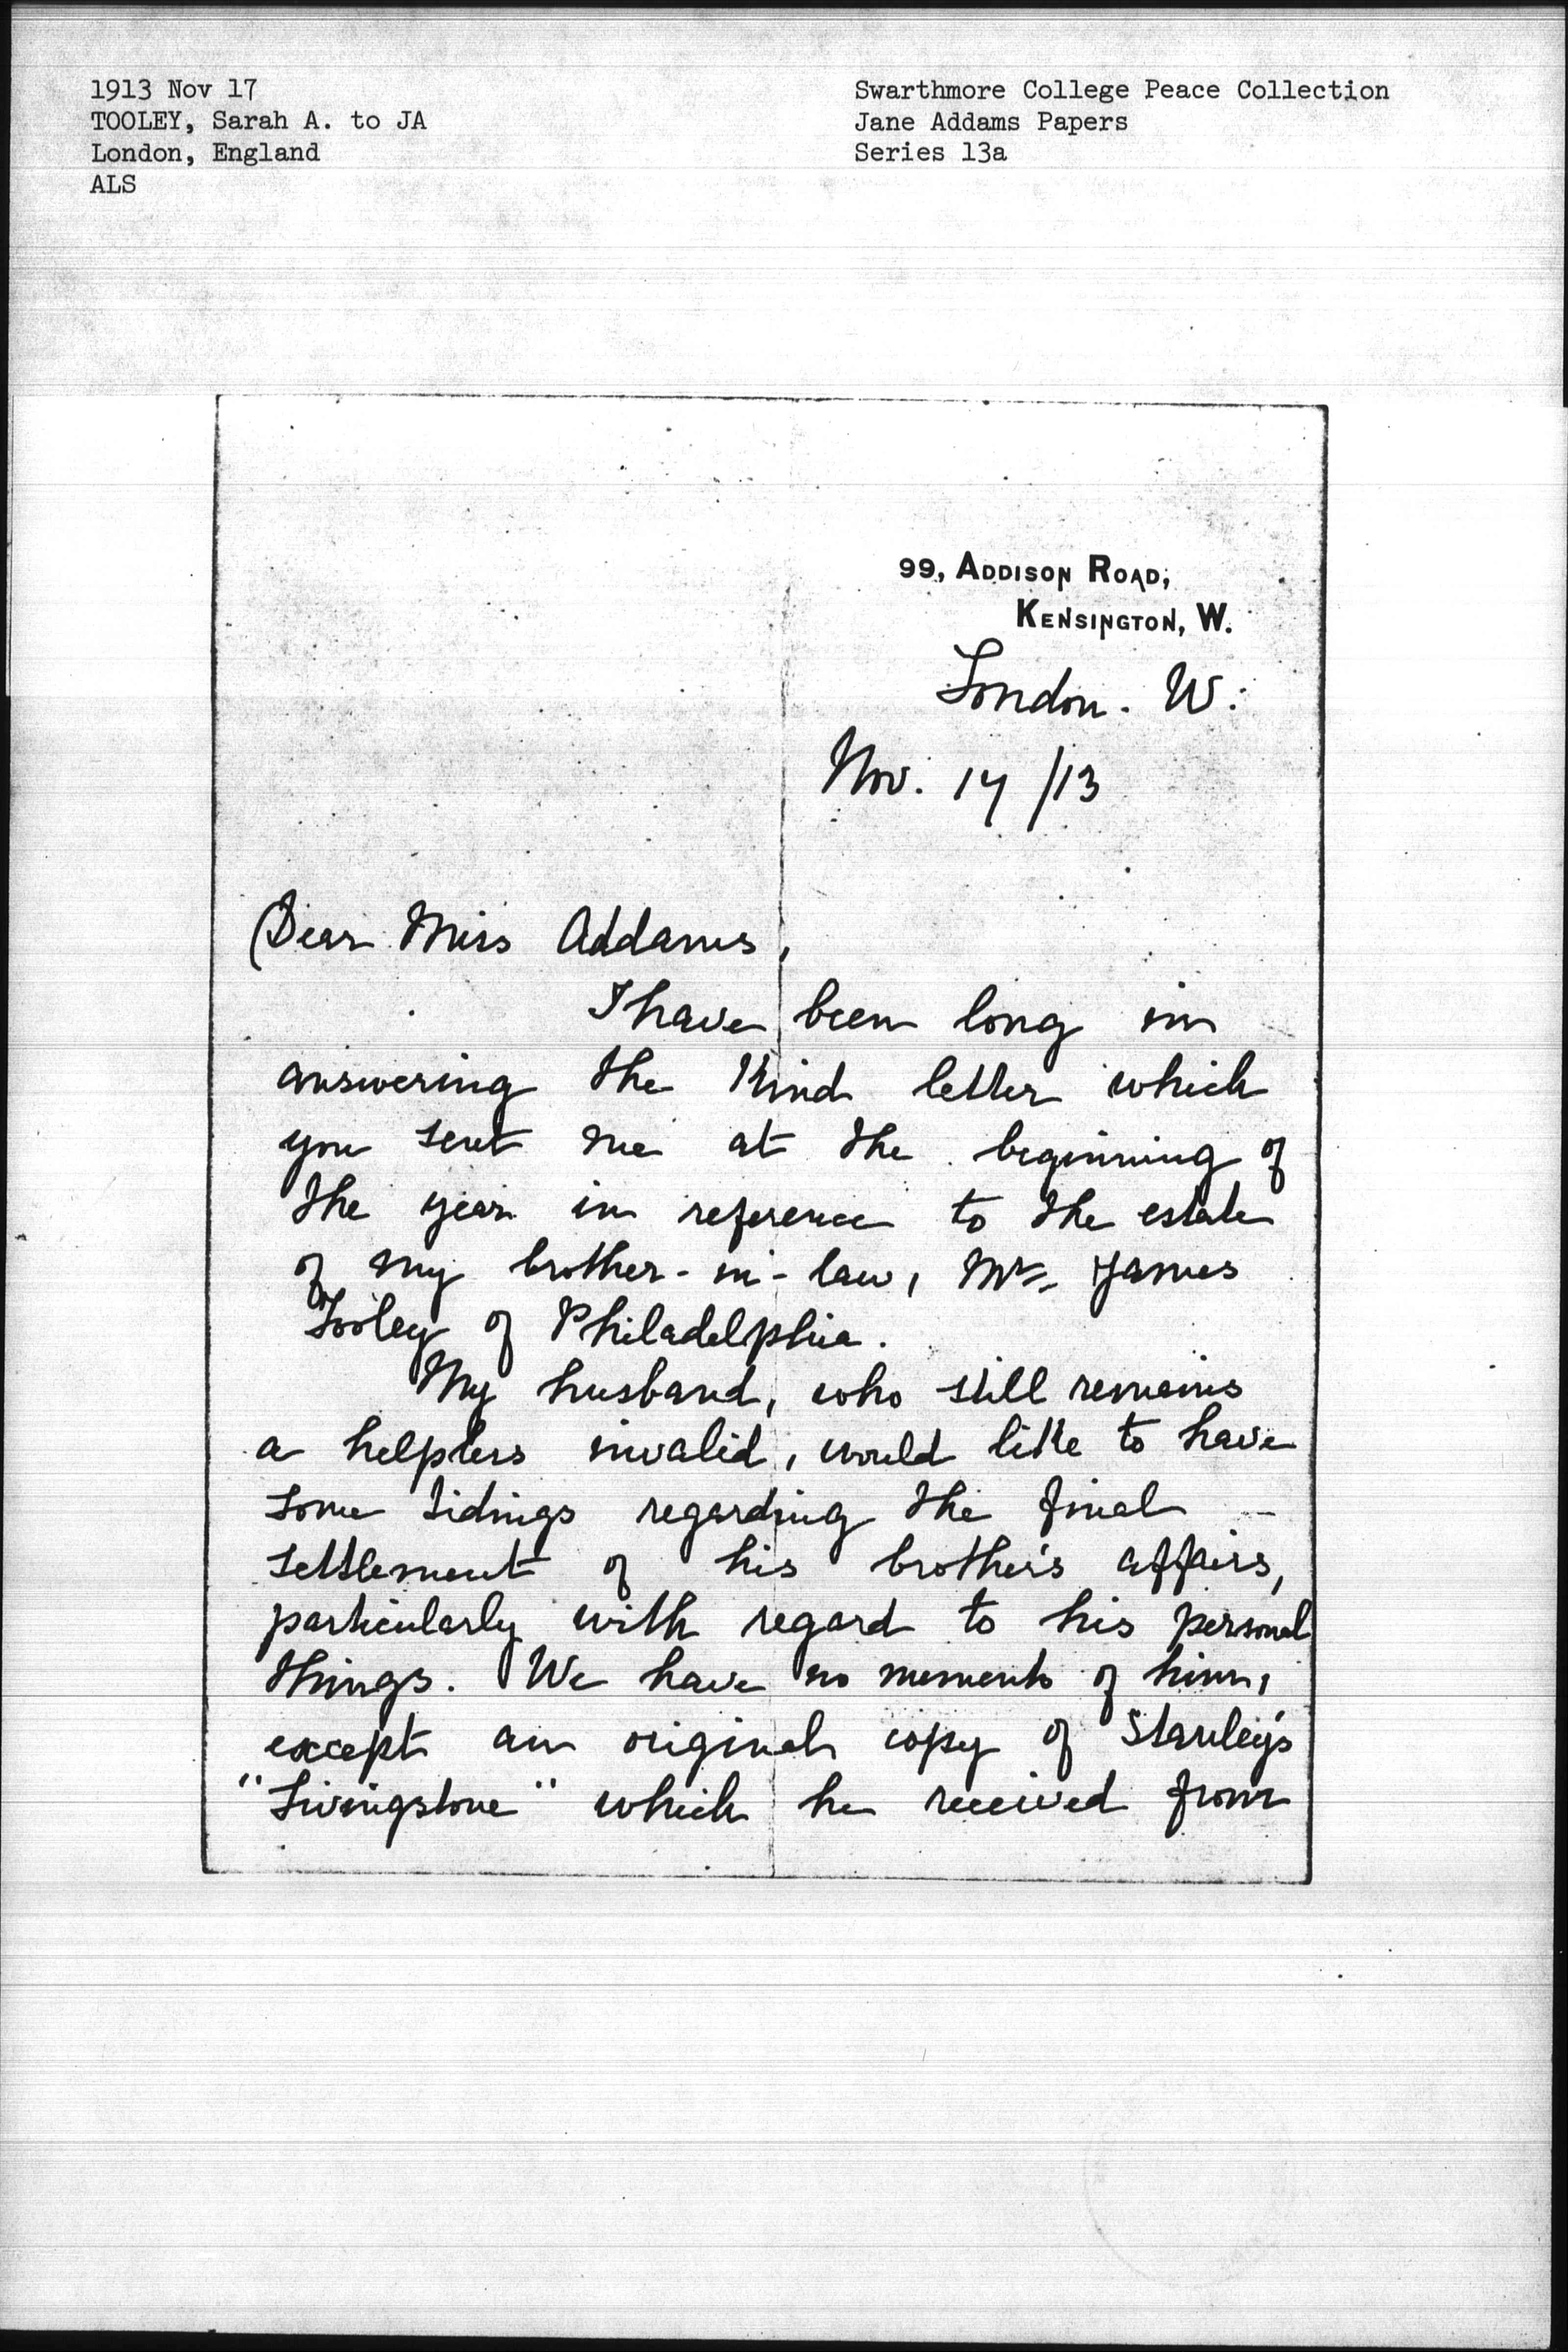 1913 Nov 17
TOOLEY, Sarah A. to JA
London, England
ALS
Swarthmore College Peace Collection
Jane Addams Papers
Series 13a
99, ADDISON ROAD,
KENSINGTON, W.
London. W.
Nov. 17/13
Dear Miss Addams,
I have been long in
answering the kind letter which
you sent me at the beginning of
the year in reference to the estate
of my brother-in-law, Mr. James
Tooley of Philadelphia.
My husband, who still remains
a helpless invalid, would like to have
some tidings regarding the final
settlement of his brother's affairs,
particularly with regard to his personal
things. We have no memento of him,
except an original copy of Stanley's
"Livingstone" which he received from